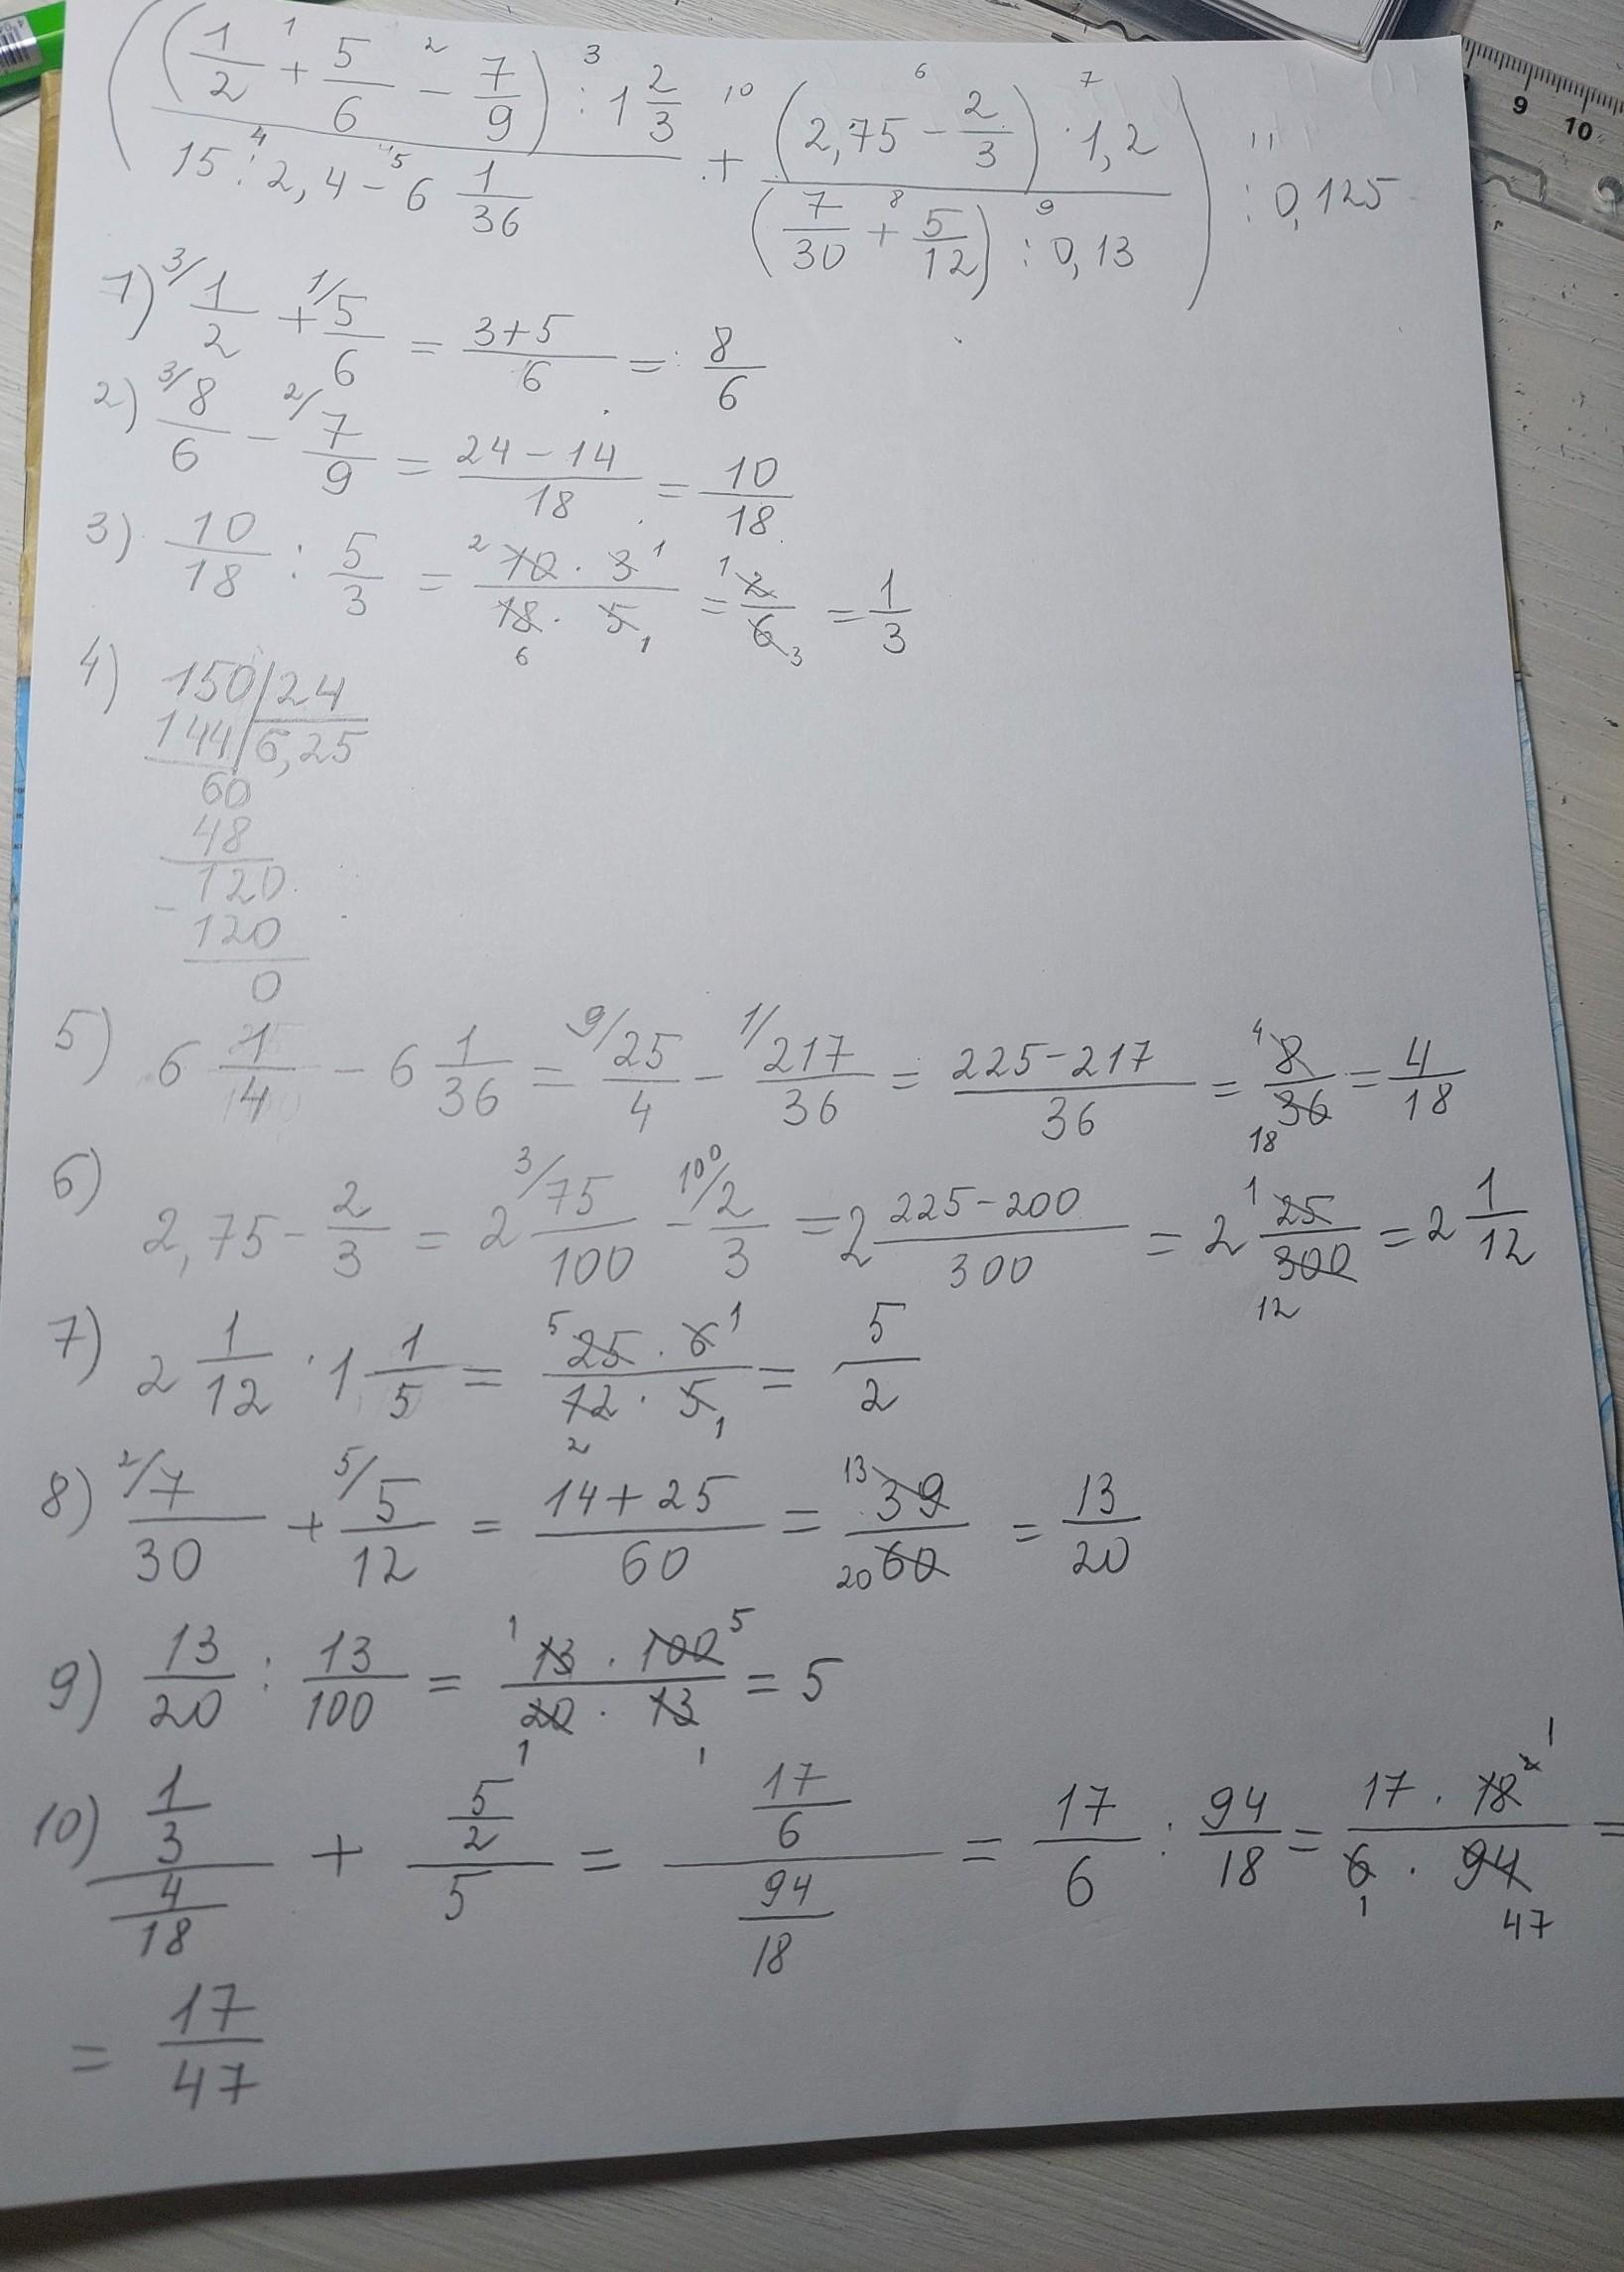 ((1/2 + 5/6 - 7/9) : 1 2/3) / (15 : 2,4 - 6 1/36) + ((2,75 - 2/3) · 1,2) / ((7/30 + 5/12) : 0,13)) : 0,125
1 2 3 10 6 7 11
4 5 8 9
1) 3/ 1/2 + 1/ 5/6 = (3+5)/6 = 8/6
2) 3/ 8/6 - 2/ 7/9 = (24-14)/18 = 10/18
3) 10/18 : 5/3 = (10 · 3)/(18 · 5) = 2/6 = 1/3
2 1 1
6 1 3
4) 150 | 24
144 | 6,25
60
48
120
- 120
0
5) 6 1/4 - 6 1/36 = 9/ 25/4 - 1/ 217/36 = (225-217)/36 = 8/36 = 4/18
4
18
6) 2,75 - 2/3 = 2 3/ 75/100 - 100/ 2/3 = 2 (225-200)/300 = 2 25/300 = 2 1/12
1
12
7) 2 1/12 · 1 1/5 = (25 · 6)/(12 · 5) = 5/2
5 1
2 1
8) 2/ 7/30 + 5/ 5/12 = (14+25)/60 = 39/60 = 13/20
13
20
9) 13/20 : 13/100 = (13 · 100)/(20 · 13) = 5
1 5
1 1
10) (1/3)/(4/18) + (5/2)/5 = (17/6)/(94/18) = 17/6 : 94/18 = (17 · 18)/(6 · 94) =
2 1
1 47
= 17/47
9 10